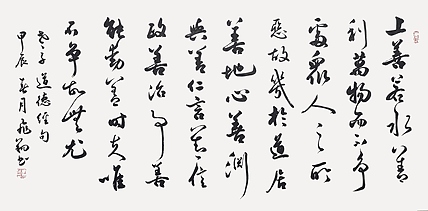 上善若水水善
利萬物而不爭
處眾人之所
惡故幾於道居
善地心善淵
與善仁言善信
政善治事善
能動善時夫唯
不爭故無尤
老子道德經句
甲辰春月書